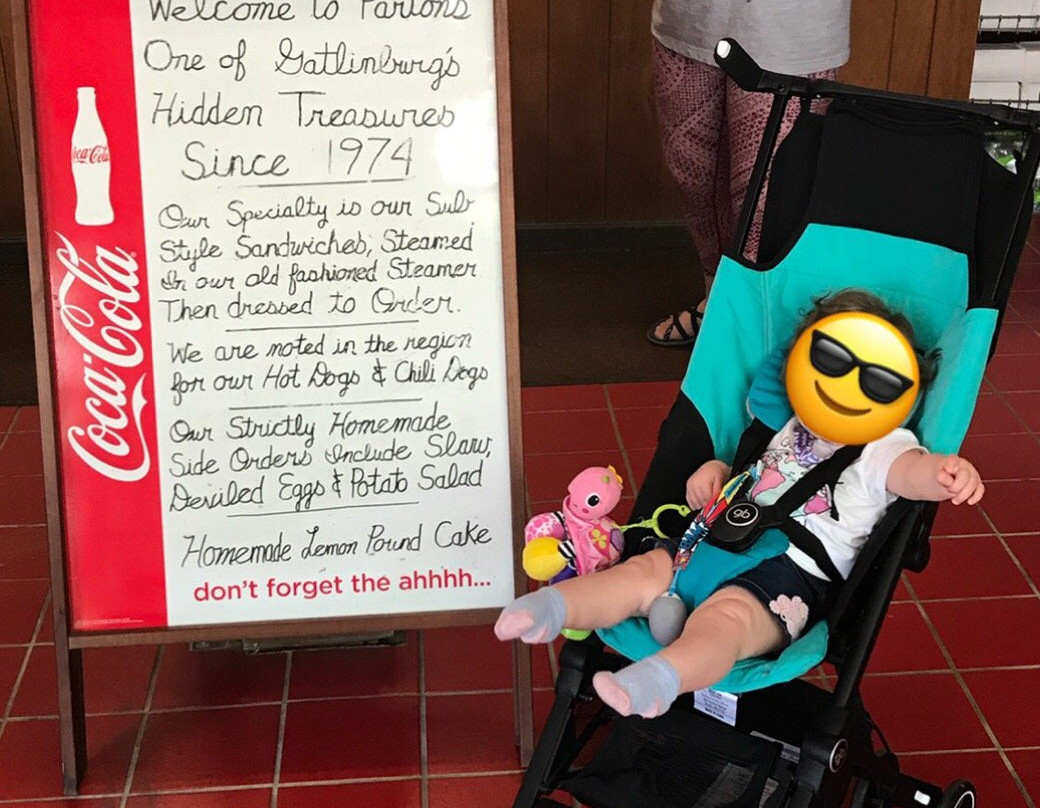 Welcome to Parton's
One of Gatlinburg's
Hidden Treasures
Since 1974
Our Specialty is our Sub
Style Sandwiches, Steamed
In our old fashioned Steamer
Then dressed to Order.
We are noted in the region
for our Hot Dogs & Chili Dogs
Our Strictly Homemade
Side Orders Include Slaw,
Deviled Eggs & Potato Salad
Homemade Lemon Pound Cake
don't forget the ahhhh...
Coca-Cola
Coca-Cola
gb
gb